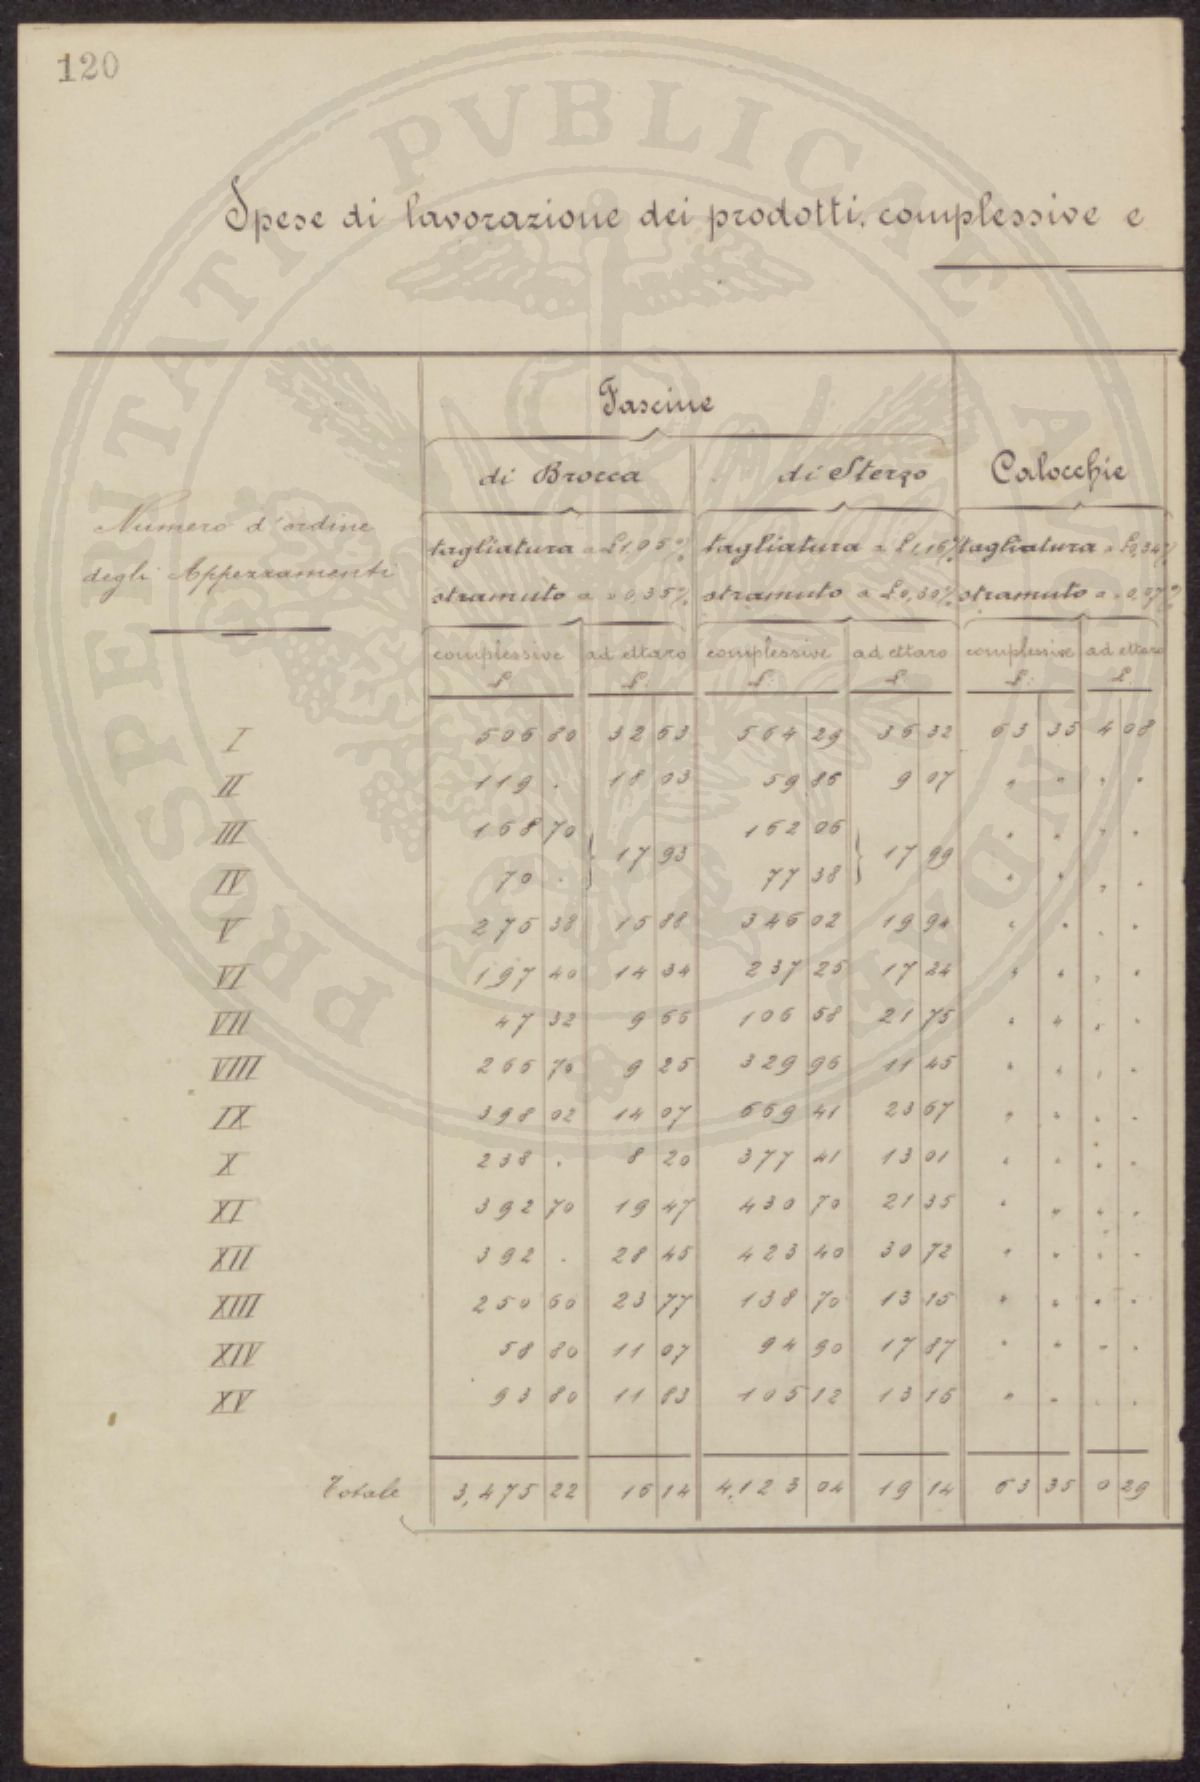 120
PROSPERITATI PVBLICAE AVGENDAE
Spese di lavorazione dei prodotti, complessive e
Fascine
di Brocca di Sterzo Calocchie
Numero d'ordine
degli Appezzamenti
tagliatura a £1,05% tagliatura a £1,16% tagliatura a £0,34%
stramuto a » 0,35% stramuto a £0,30% stramuto a » 0,07%
complessive ad ettaro complessive ad ettaro complessive ad ettaro
£: £: £: £: £: £:
I 506 80 32 63 564 29 36 32 63 35 4 08
II 119 . 18 03 59 86 9 07 " " " "
III 168 70 162 06 " " " "
17 93 17 99
IV 70 . 77 38 " " " "
V 275 38 15 88 346 02 19 94 " " " "
VI 197 40 14 34 237 25 17 24 " " " "
VII 47 32 9 66 106 58 21 75 " " " "
VIII 266 70 9 25 329 96 11 45 " " " "
IX 398 02 14 07 669 41 23 67 " " " "
X 238 . 8 20 377 41 13 01 " " " "
XI 392 70 19 47 430 70 21 35 " " " "
XII 392 . 28 45 423 40 30 72 " " " "
XIII 250 60 23 77 138 70 13 15 " " " "
XIV 58 80 11 07 94 90 17 87 " " " "
XV 93 80 11 83 105 12 13 16 " " " "
Totale 3,475 22 16 14 4,123 04 19 14 63 35 0 29